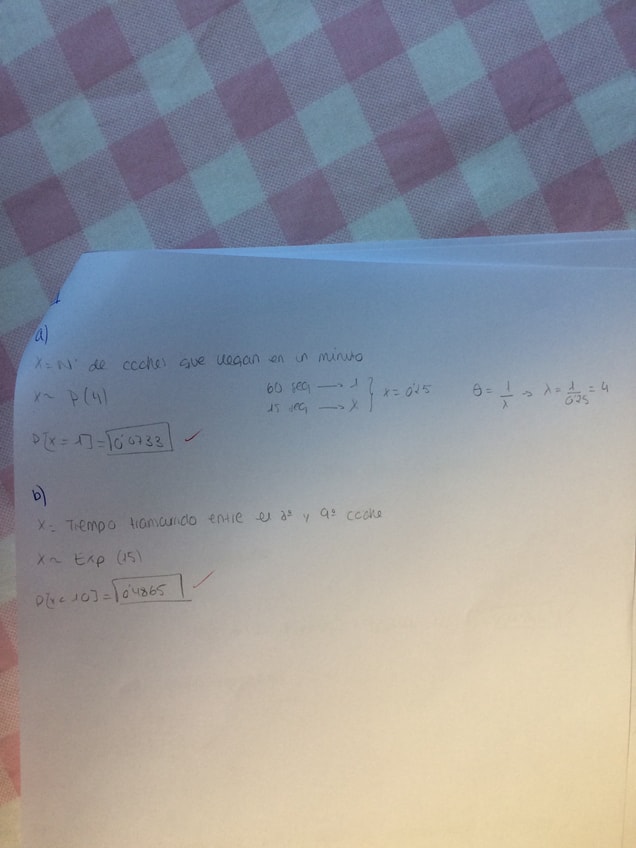 a)
X = Nº de coches que llegan en un minuto
X ~ P(4)
60 seg → 1
15 seg → X } X = 0'25
θ = 1/λ → λ = 1/0'25 = 4
P[X = 1] = 0'0733 ✓
b)
X = Tiempo transcurrido entre el 3º y 4º coche
X ~ Exp (15)
P[X < 10] = 0'4865 ✓